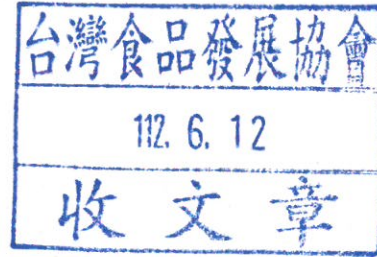 台灣食品發展協會
112. 6. 12
收文章